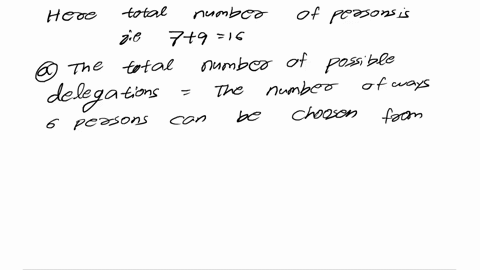 Here total number of persons is
i.e 7+9 =16
(a) The total number of possible
delegations = The number of ways
6 persons can be choosen from